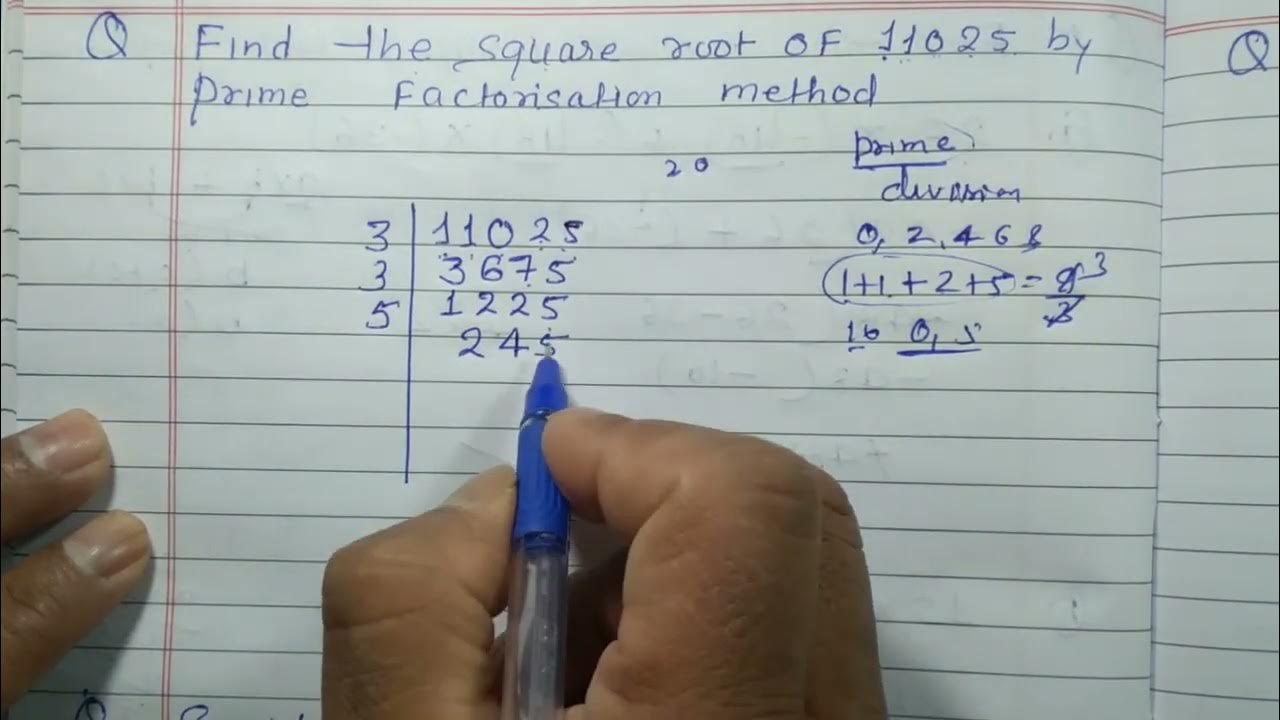 Q Find the square root OF 11025 by
Prime Factorisation method
prime
20
division
3 11025
0, 2, 4 6 8
3 3675
1+1+2+5=9 3
3
5 1225
16 0, 5
245
Q